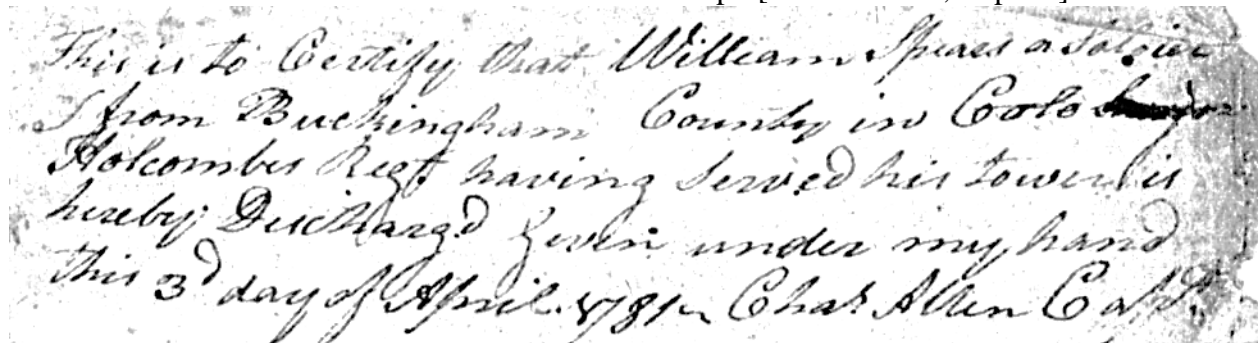 This is to Certify that William Spears a Soldier
from Buckingham County in Colo
Holcombes Regt. having Served his tower is
hereby Discharg.d Given under my hand
this 3d day of April 1781 Chas Allen Capt.